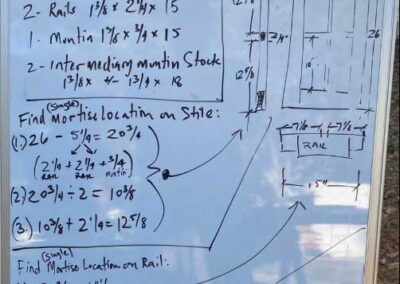 2 - Rails 1 3/8 x 2 1/4 x 15
1 - Muntin 1 3/8 x 3/4 x 15
2 - Intermediary Muntin Stock
1 3/8 x +/- 1 3/4 x 18
(Single)
Find Mortise Location on Stile:
(1.) 26 - 5 1/4 = 20 3/4
(2 1/4 + 2 1/4 + 3/4)
RAIL RAIL Muntin
(2.) 20 3/4 ÷ 2 = 10 3/8
(3.) 10 3/8 + 2 1/4 = 12 5/8
(Single)
Find Mortise Location on Rail:
12 5/8
3/4
12 5/8
26
7 1/8 7 1/8
RAIL
15"